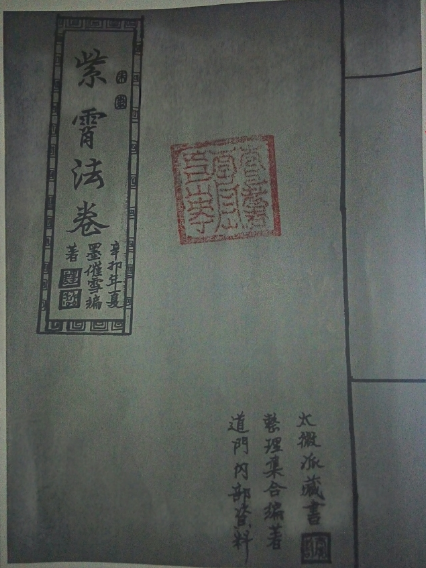 紫霄法卷
辛卯年夏
墨催雪编
著
太微派藏書
整理集合编著
道門內部資料